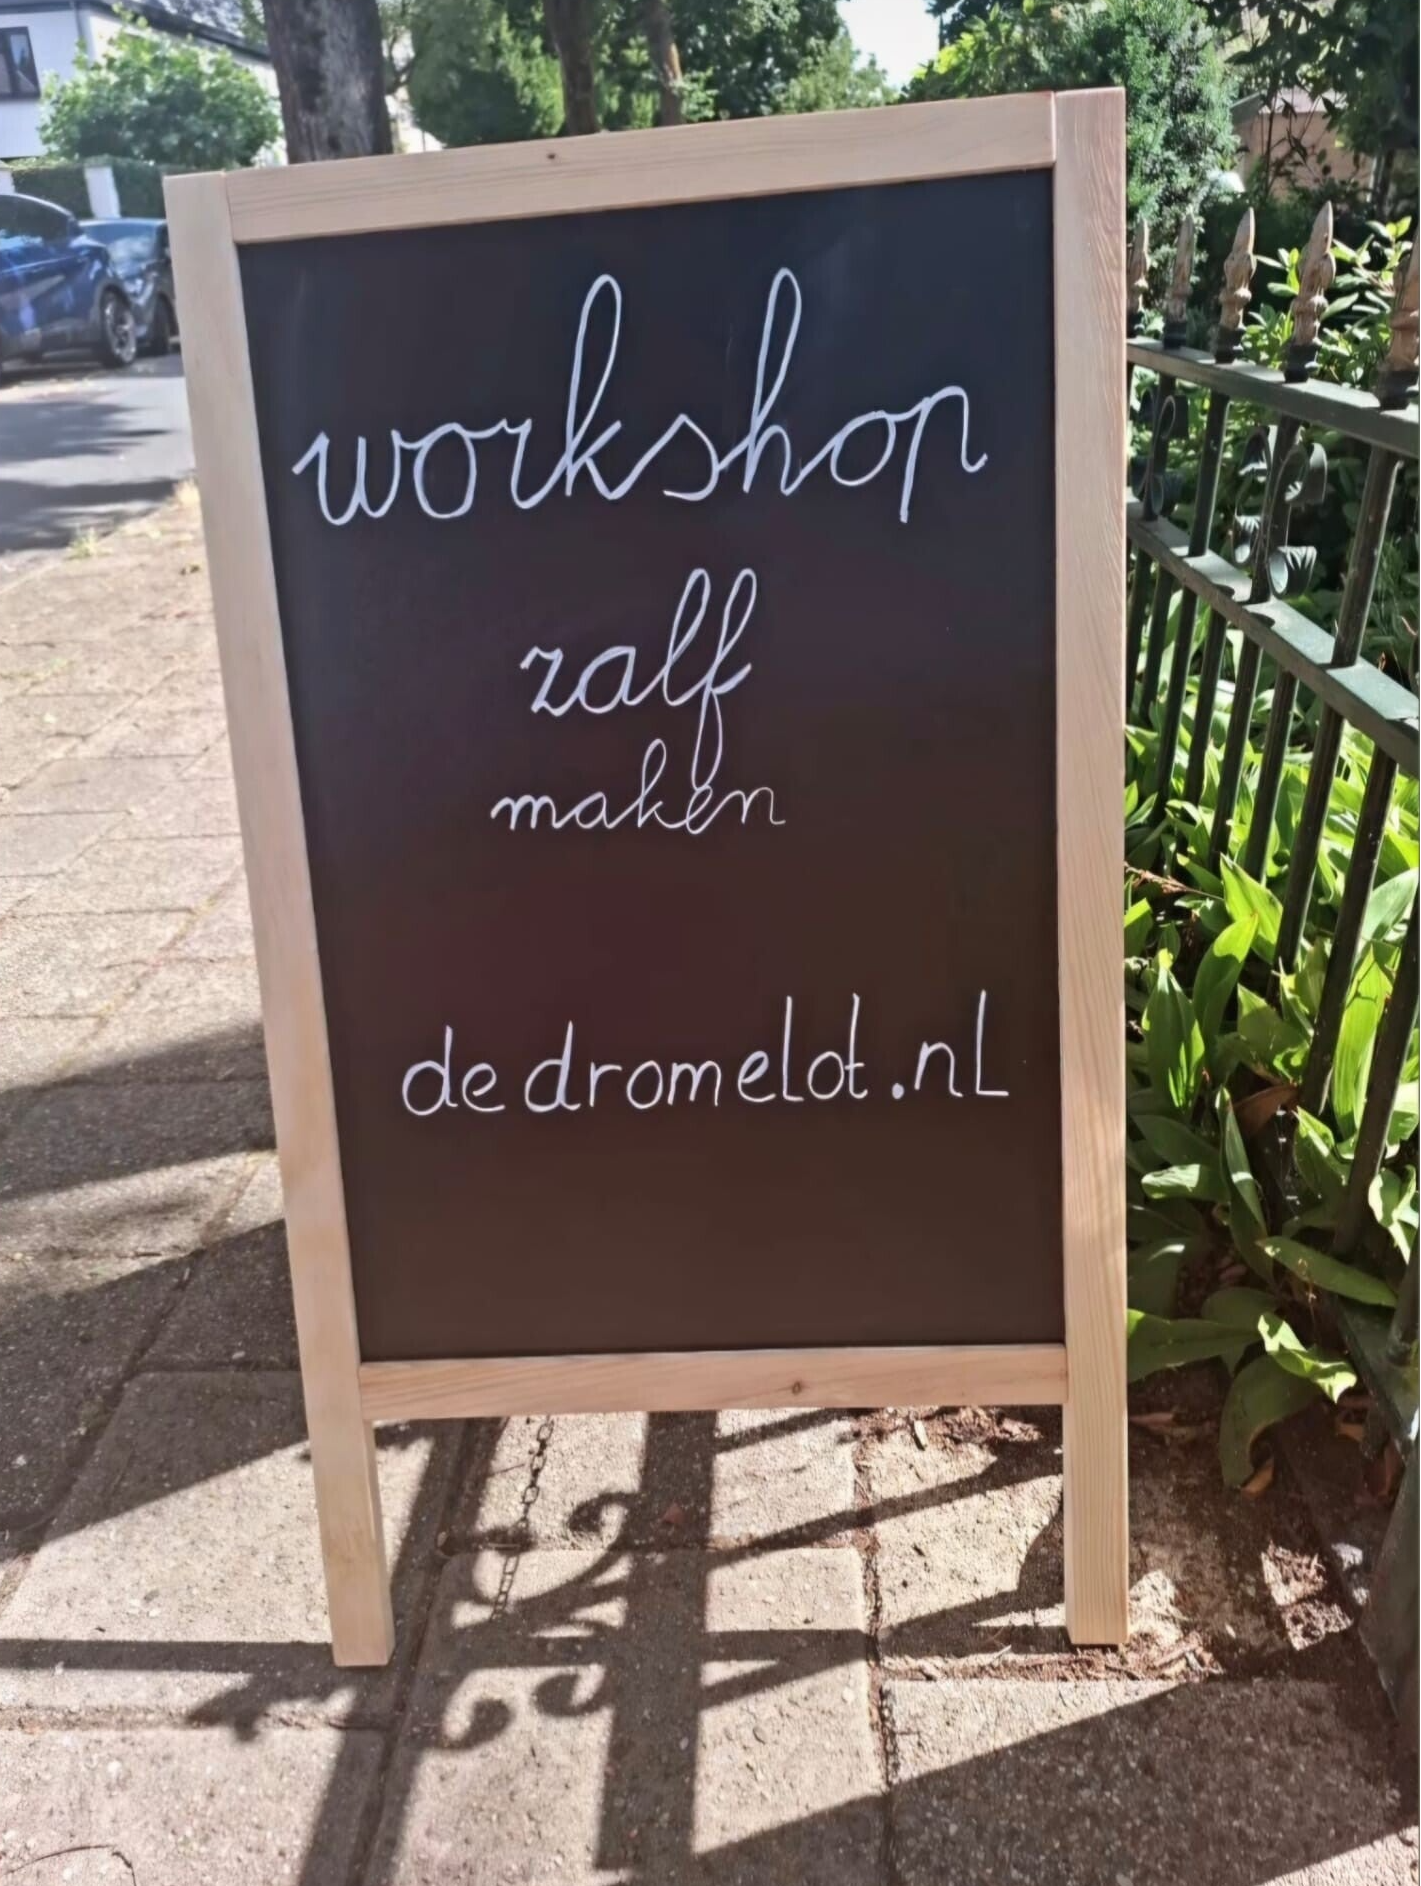 workshop
zalf
maken
dedromelot.nl